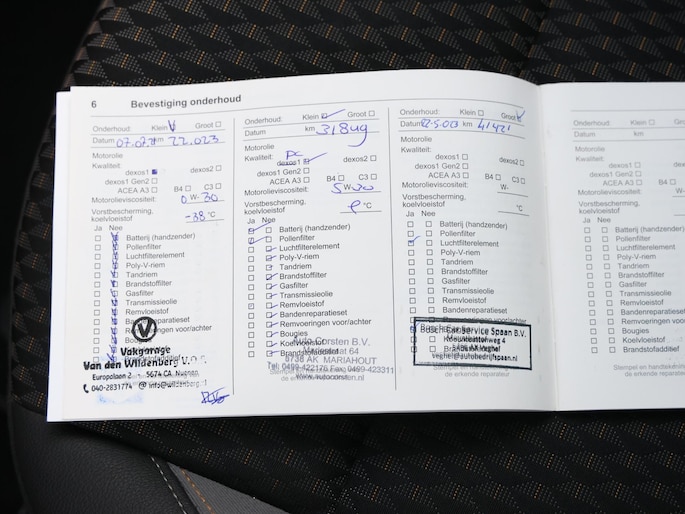 6 Bevestiging onderhoud
Onderhoud: Klein Groot
Datum km 22.023
Motorolie
Kwaliteit:
dexos1 dexos2
dexos1 Gen2
ACEA A3 B4 C3
Motorolieviscositeit: 0 W- 30
Vorstbescherming,
koelvloeistof -38 °C
Ja Nee
Batterij (handzender)
Pollenfilter
Luchtfilterelement
Poly-V-riem
Tandriem
Brandstoffilter
Gasfilter
Transmissieolie
Remvloeistof
Bandenreparatieset
Remvoeringen voor/achter
Vakgarage
Van den Wildenberg V.O.F.
Europalaan 2 5674 CA. Nuenen
040-2831774 @ info@wildenberg
Onderhoud: Klein Groot
Datum km 31849
Motorolie
Kwaliteit:
dexos1 dexos2
dexos1 Gen2
ACEA A3 B4 C3
Motorolieviscositeit: 5 W-30
Vorstbescherming,
koelvloeistof °C
Ja Nee
Batterij (handzender)
Pollenfilter
Luchtfilterelement
Poly-V-riem
Tandriem
Brandstoffilter
Gasfilter
Transmissieolie
Remvloeistof
Bandenreparatieset
Remvoeringen voor/achter
Bougies
Koelvloeistof
Brandstofadditief
Auto Corsten B.V.
5738 AK MARIAHOUT
Tel: 0499-422176 Fax: 0499-423311
www.autocorsten
Onderhoud: Klein Groot
Datum km 41421
Motorolie
Kwaliteit:
dexos1 dexos2
dexos1 Gen2
ACEA A3 B4 C3
Motorolieviscositeit: W-
Vorstbescherming,
koelvloeistof °C
Ja Nee
Batterij (handzender)
Pollenfilter
Luchtfilterelement
Poly-V-riem
Tandriem
Brandstoffilter
Gasfilter
Transmissieolie
Remvloeistof
Bandenreparatieset
Remvoeringen voor/achter
Bosch Car Service Spaan B.V.
veghel@autobedrijfspaan.nl
Stempel en
de erkende reparateur
Onderhoud:
Datum
Motorolie
Kwaliteit:
dexos1
dexos1 Gen2
ACEA A3
Motorolieviscositeit:
Vorstbescherming,
koelvloeistof
Ja Nee
Batterij (handzender)
Pollenfilter
Luchtfilterelement
Poly-V-riem
Tandriem
Brandstoffilter
Gasfilter
Transmissieolie
Remvloeistof
Bandenreparatieset
Remvoeringen voor/achter
Bougies
Koelvloeistof
Brandstofadditief
Stempel en
de erkende reparateur